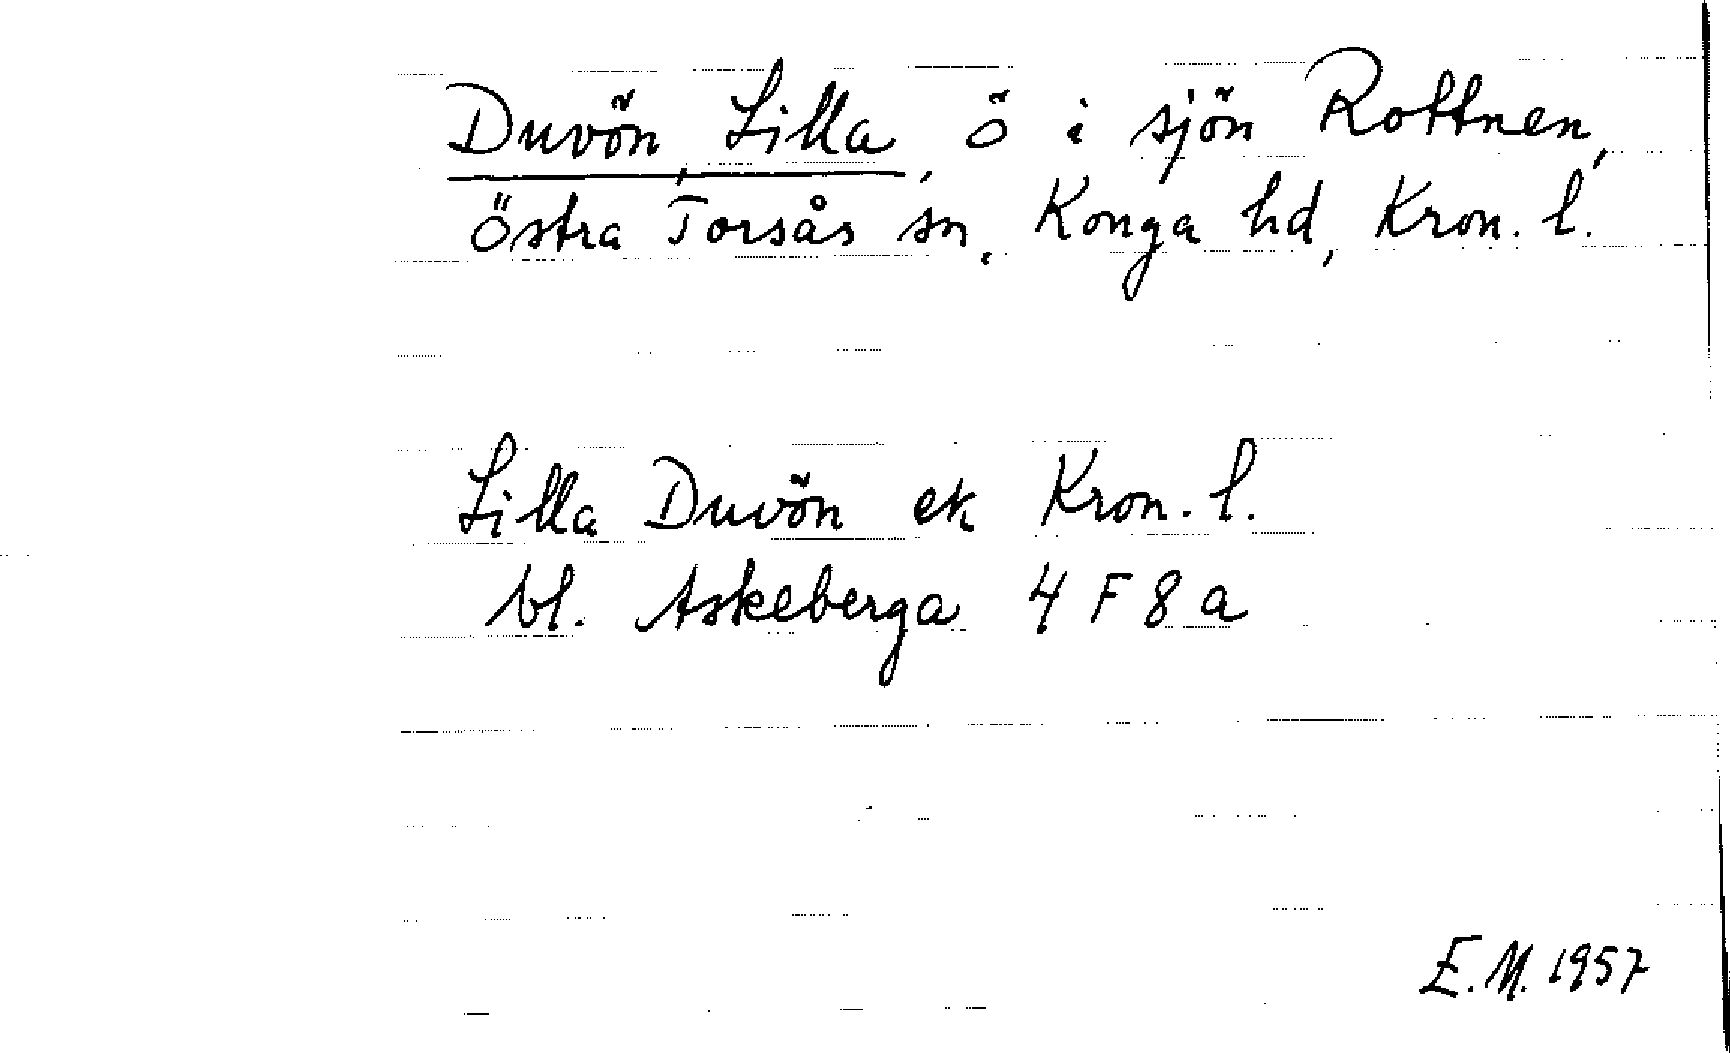 Duvön, Lilla, ö i sjön Rottnen,
Östra Torsås sn, Konga hd, Kron. l.
Lilla Duvön ek Kron. l.
bl. Askeberga 4 F 8 a
E.M. 1957